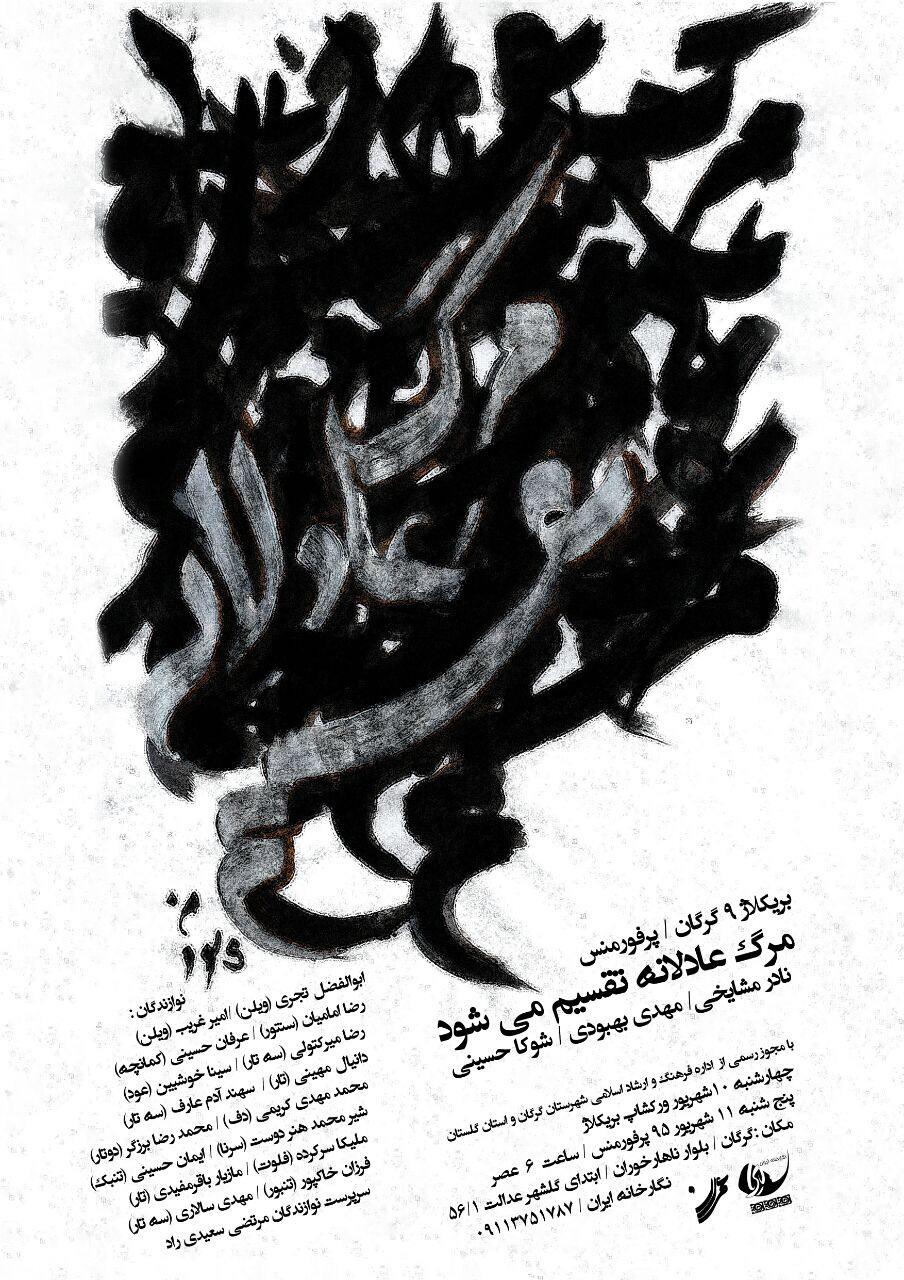 مرگ
عادلانه
بریکلاژ ۹ گرگان / پرفورمنس
مرگ عادلانه تقسیم می شود
نادر مشایخی / مهدی بهبودی / شوکا حسینی
با مجوز رسمی از اداره فرهنگ و ارشاد اسلامی شهرستان گرگان و استان گلستان
چهارشنبه ۱۰ شهریور ورکشاپ بریکلاژ
پنج شنبه ۱۱ شهریور ۹۵ پرفورمنس / ساعت ۶ عصر
مکان : گرگان / بلوار ناهارخوران / ابتدای گلشهر عدالت ۵۶/۱
نگارخانه ایران / ۰۹۱۱۳۷۵۱۷۸۷
نوازندگان :
ابوالفضل تجری (ویلن) / امیر غریب (ویلن)
رضا امامیان (سنتور) / عرفان حسینی (کمانچه)
رضا میرکتولی (سه تار) / سینا خوشبین (عود)
دانیال مهینی (تار) / سهند آدم عارف (سه تار)
محمد مهدی کریمی (دف) / محمد رضا برزگر (دوتار)
شیر محمد هنر دوست (سرنا) / ایمان حسینی (تنبک)
ملیکا سرکرده (فلوت) / مازیار باقرمفیدی (تار)
فرزان خاکپور (تنبور) / مهدی سالاری (سه تار)
سرپرست نوازندگان مرتضی سعیدی راد